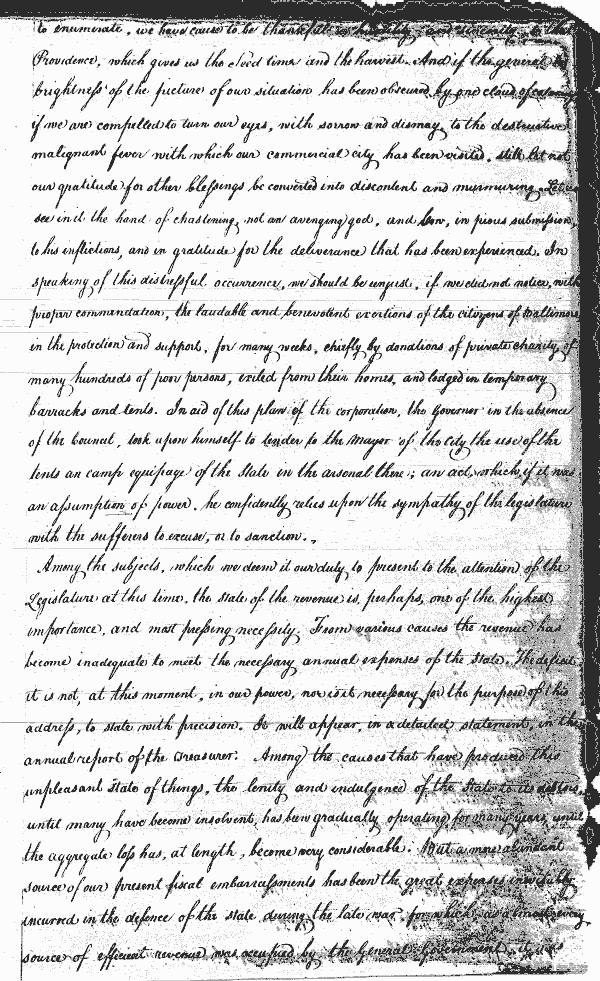 to enumerate, we have cause to be thankful in humility, and sincerity, to that
Providence, which gives us the seed time and the harvest. And if the general
brightness of the picture of our situation has been obscured by one cloud of calamity
if we are compelled to turn our eyes, with sorrow and dismay, to the destructive
malignant fever with which our commercial city has been visited, still let not
our gratitude for other blessings be converted into discontent and murmuring. Let us
see in it the hand of chastening, not an avenging god, and bow, in pious submission,
to his inflictions, and in gratitude for the deliverance that has been experienced. In
speaking of this distressful occurrence, we should be unjust, if we did not notice, with
proper commendation, the laudable and benevolent exertions of the citizens of Baltimore
in the protection and support, for many weeks, chiefly by donations of private charity, of
many hundreds of poor persons, exiled from their homes, and lodged in temporary
barracks and tents. In aid of this plan of the corporation, the Governor in the absence
of the Council, took upon himself to tender to the Mayor of the city the use of the
tents an camp equipage of the State in the arsenal there; an act, which, if it was
an assumption of power, he confidently relies upon the sympathy of the legislature
with the sufferers to excuse, or to sanction.
Among the subjects, which we deem it our duty to present to the attention of the
Legislature at this time, the state of the revenue is, perhaps, one of the highest
importance, and most pressing necessity. From various causes the revenue has
become inadequate to meet the necessary annual expenses of the State. The deficit
it is not, at this moment, in our power, nor is it necessary for the purpose of this
address, to state with precision. It will appear, in a detailed statement, in the
annual report of the Treasurer. Among the causes that have produced this
unpleasant State of things, the lenity and indulgence of the State to its debtors,
until many have become insolvent, has been gradually operating for many years, until
the aggregate loss has, at length, become very considerable. But a more abundant
source of our present fiscal embarrassments has been the great expenses inevitably
incurred in the defence of the state during the late war, for which, as almost every
source of efficient revenue was occupied by the General Government, it was